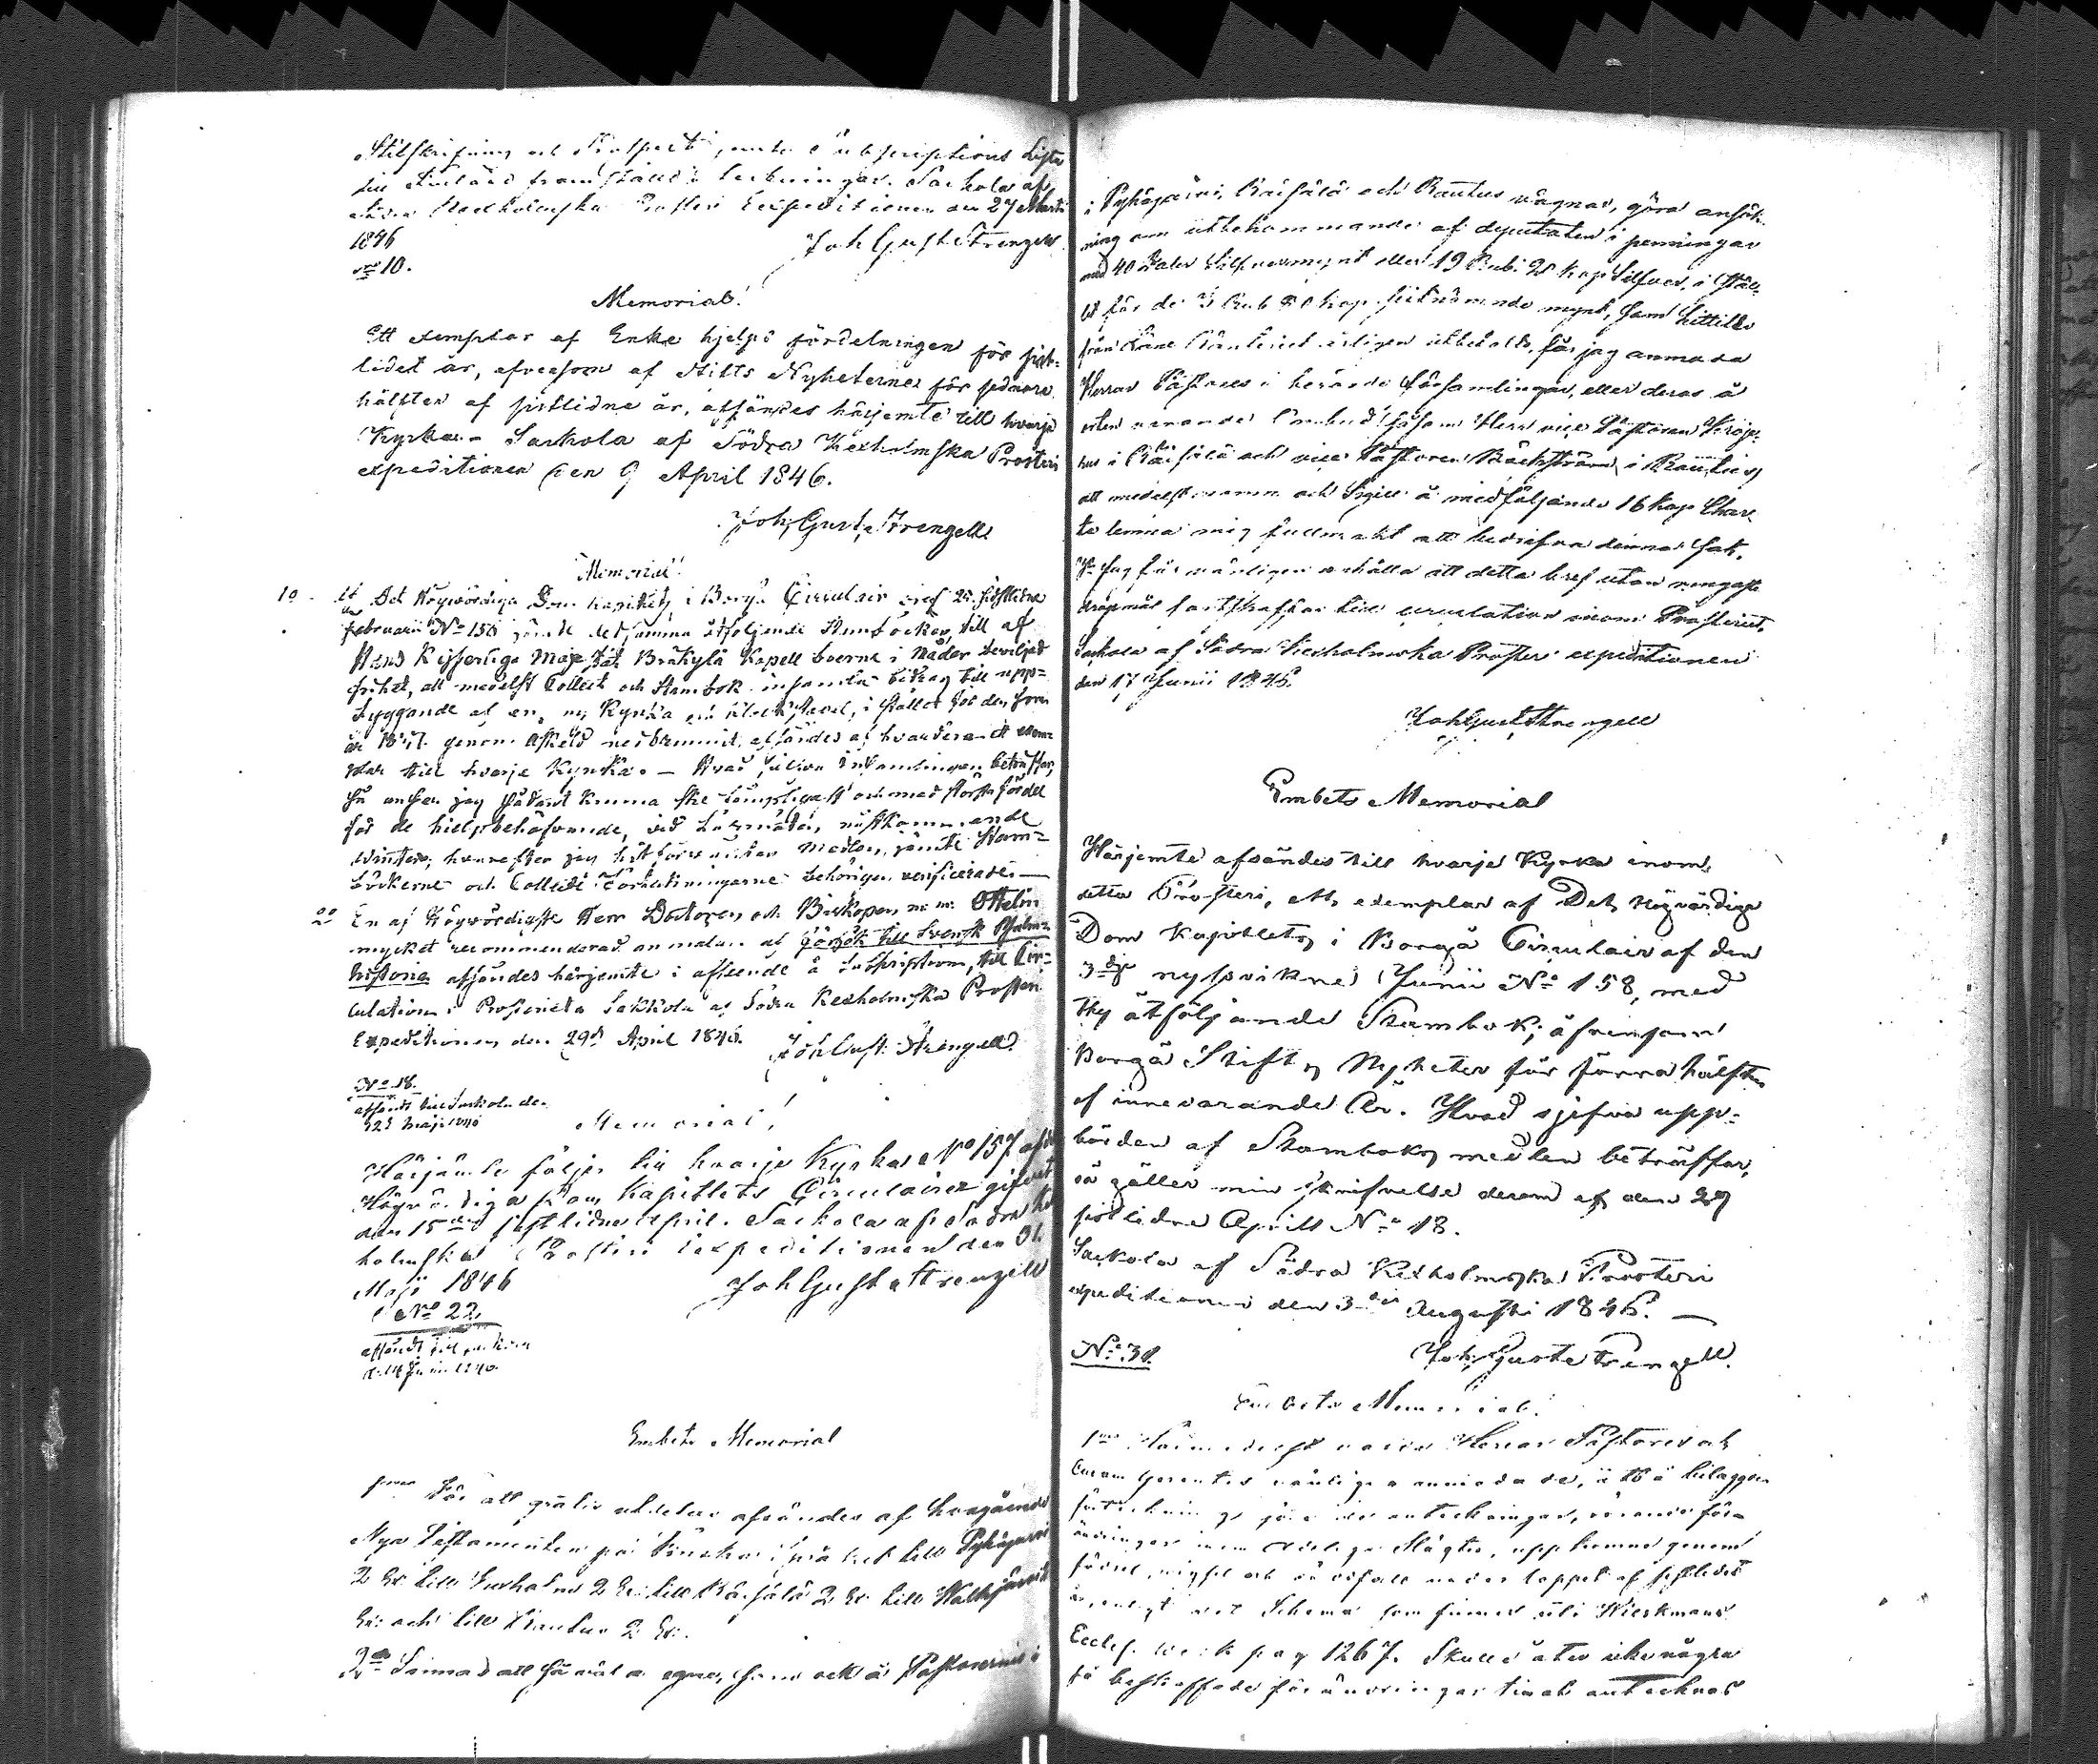 Stilskrifning och Prospect, samt Subscriptions Lista
till framställda teckningar. Sackola af
Södra Kexholmska Prosteri Expeditionen den 27 Martii
1846
Joh Gust Strengell
No 10.
Memorial!
Ett exemplar af Enke hjelps fördelningen för sist-
lidet år, äfvensom af Stifts Nyheterne för sednare
hälften af sistlidne år, afsändes härjemte till hvarje
Kyrka. - Sackola af Södra Kexholmska Prosteri
expeditionen den 9 April 1846.
Joh. Gust. Strengell
Memorial!
1o Det Högvördiga Dom Kapitlets i Borgå Circulair bref sistlidne
Februarii No 156 jemte detsamma åtföljande Stamböcker, till af
Hans Kejserliga Maje Bräkylä Kapell boerne i Nåder beviljad
frihet, att medelst Collect och Stambok insamla bidrag till upp=
byggande af en ny Kyrka och Klockstapel, i stället för den som
år genom Åskeld nedbrunnit, afsändes af hvardera ett exem=
plar till hvarje Kyrka. — Hvad sjelfva Insamlingen beträffar,
så anser jag sådant kunna ske lämpligast och med största fördel
för de hielpbehöfvande, vid Läsmöten, nästkommande
winter, hvarefter jag hit förväntar Medlen, jämte Stam=
böckerne och Collect Förteckningarne behörigen verificerade. —
2o En af Högvördigste Herr Doctoren och Biskopen m. m. Ottelin
mycket recommenderad anmälan af Försök till Svensk Psalm=
historia afsändes härjemte i afseende å Subscription, till Cir=
culation i Prosteriet. Sakkola af Södra Kexholmska Prosteri
Expeditionen den 29de April 1846.
Joh Gust. Strengell.
No 18.
afsändt till Sackola den
22 Maji 1846
Memorial!
Härjämte följer till hvarje Kyrka No 157 af det
Högvördiga Dom Kapitlets Circulairer gifvet
den 15de sistlidne April. Sackola af Södra Kex
holmska Prosteri Expeditionen den
Maji 1846
Joh Gust Strengell
No 22.
afsändt till
Junii 1846
Embets Memorial
1mo För att gratis utdelas afsändes af
Nya Testamenten på Finska Språket till Pyhäjärvi
2 Ex. till Kexholm 2 Ex: till Räisälä 2 Ex till Walkjärvi
Ex: och till Rautus 2 Ex.
2do Sinnad att så väl å egna, som ock å Pastorernes i
i Pyhäjärvi, Räisälä och Rautus vägnar, göra ansök-
ning om utbekommande af deputaten i penningar
med 40 Daler Silfvermynt eller 19 Rub: 20 kop Silfver, i stäl-
let för de 3 Rub kop sistnämnde mynt, som hittills
från Läne Ränteriet årligen utbetalts, får jag anmoda
Herrar Pastorer i berörde församlingar, eller deras å
orten varande Ombud, såsom Herr vice Pastoren
i Räisälä och vice Pastoren Bäckström i Rautus
att medelst namn och Sigill å medföljande 16 kop Char-
ta lemna mig fullmakt att bedrifva denna sak.
3o Jag får vänligen anhålla att detta bref utan ringaste
dröjsmål fortskaffas till circulation inom Prosteriet.
Sackola af Södra Kexholmska Prosteri expeditionen
den 17 Junii 1846.
Joh Gust Strengell
Embets Memorial
Härjemte afsändes till hvarje Kyrka inom
detta Prosteri, ett exemplar af Det Högvördiga
Dom Kapitlets i Borgå Circulair af den
3dje nyssvikne Junii No 158, med
thy åtföljande Stambok; äfvensom
Borgå Stifts Nyheter för förra hälften
af innevarande År. Hvad sjefva upp-
börden af Stamboks medlen beträffar,
så gäller min skrifvelse derom af den 29
sistlidne Aprill No 18.
Sackola af Södra Kexholmska Prosteri
expeditionen den 3die Augusti 1846. —
No 31.
Joh. Gust Strengell.
Embets Memorial.
1mo Härmedelst varda Herrar Pastorer och
Curam Gerentes vänligen anmodade, att å bilagde
förteckning göra anteckningar, rörande för-
ändringar inom Adeliga Slägter, uppkomne genom
födsel, vigsel och dödsfall under loppet af sistledet
år, enligt det Schema som finnes uti Wickmans
Eccles. werk pag 1267. Skulle åter icke några
så beskaffade förändringar timat antecknas